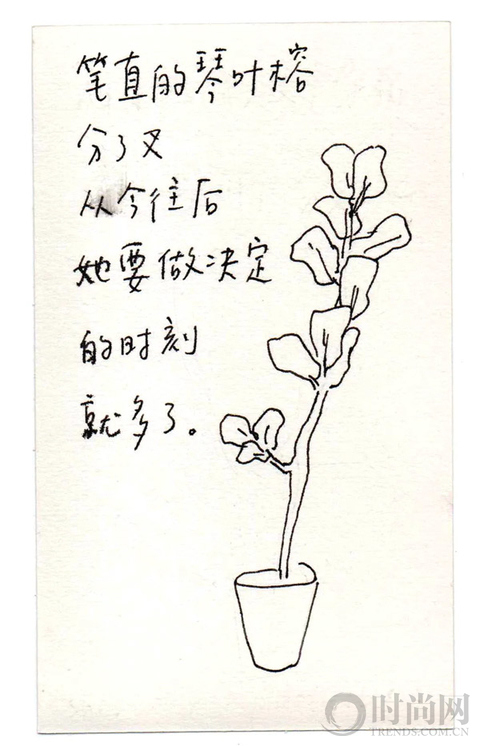 笔直的琴叶榕
分了叉
从今往后
她要做决定
的时刻
就多了。
时尚网
TRENDS.COM.CN